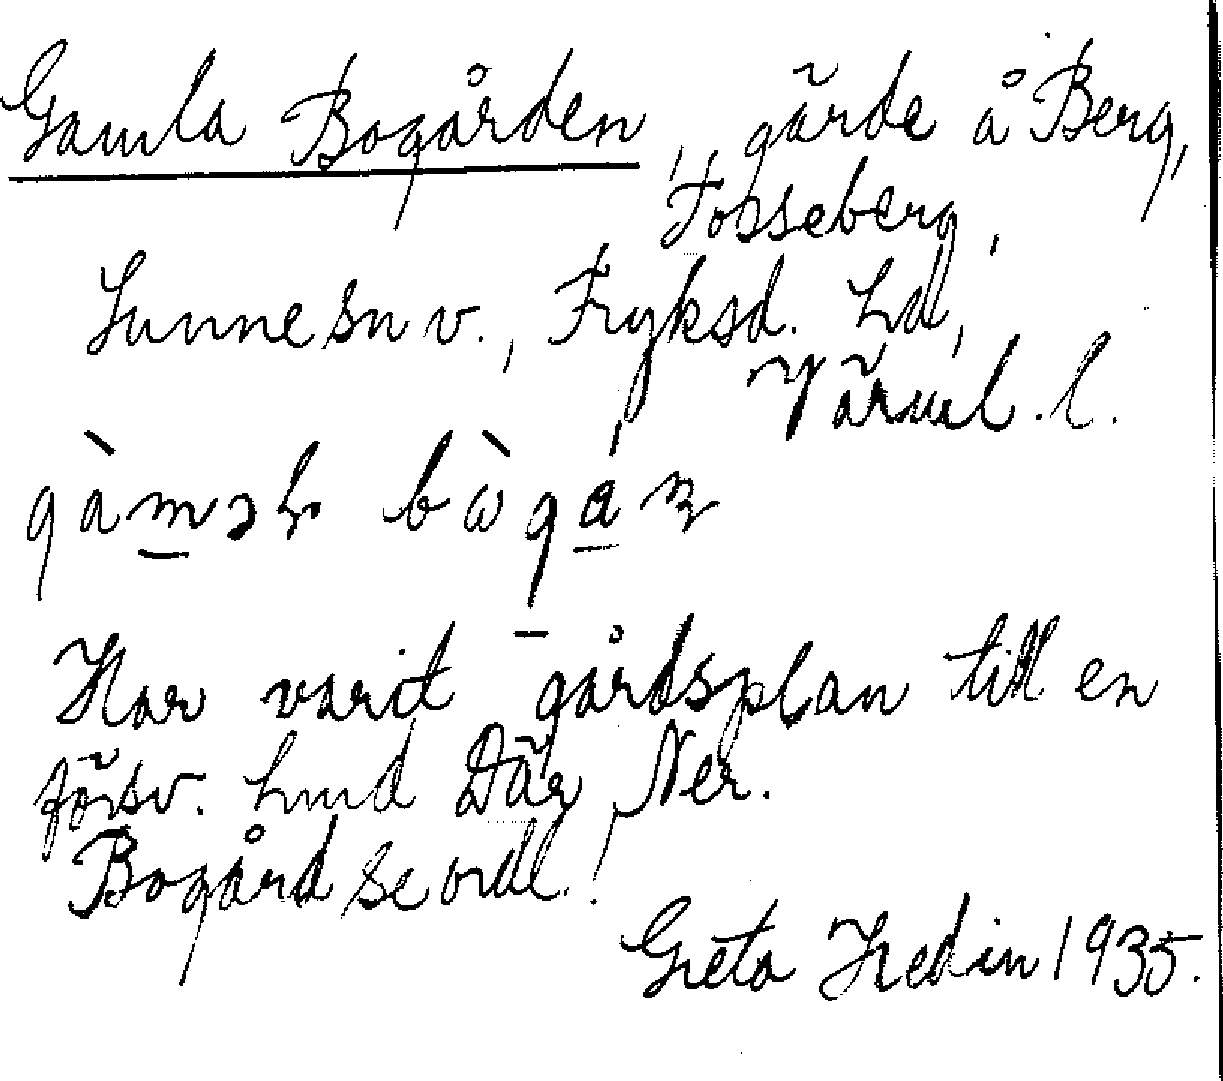 Gamla Bogården, gärde å Berg,
Fosseberg,
Sunne sn v., Fryksd. hd,
Värml. l.
Har varit gårdsplan till en
försv. hmd Där Ner.
Bogård se ordl.!
Greta Hedin 1935.